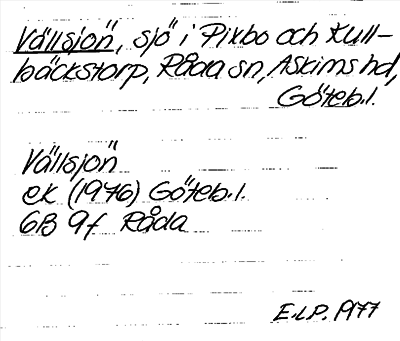 Vällsjön, sjö i Pixbo och Kull-
bäckstorp, Råda sn, Askims hd,
Göteb.l.
Vällsjön
ek (1976) Göteb.l.
6B 9f Råda
E.L.P. 1977